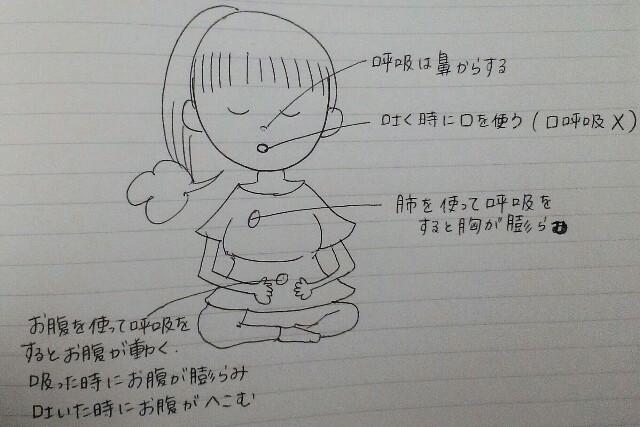 呼吸は鼻からする
吐く時に口を使う(口呼吸X)
肺を使って呼吸を
すると胸が膨らむ
お腹を使って呼吸を
するとお腹が動く.
吸った時にお腹が膨らみ
吐いた時にお腹がへこむ